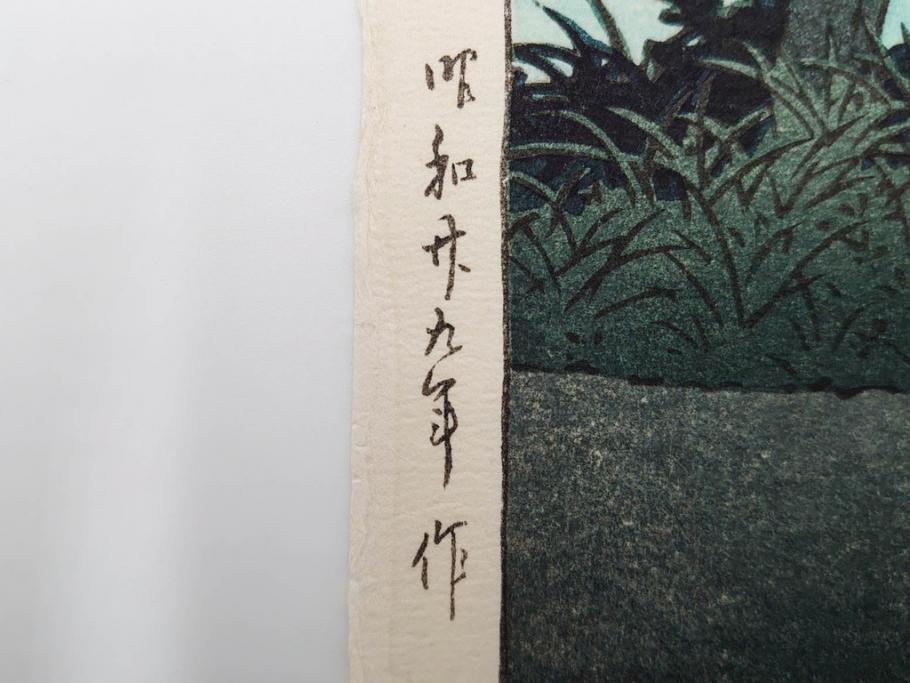 昭和廿九年 作